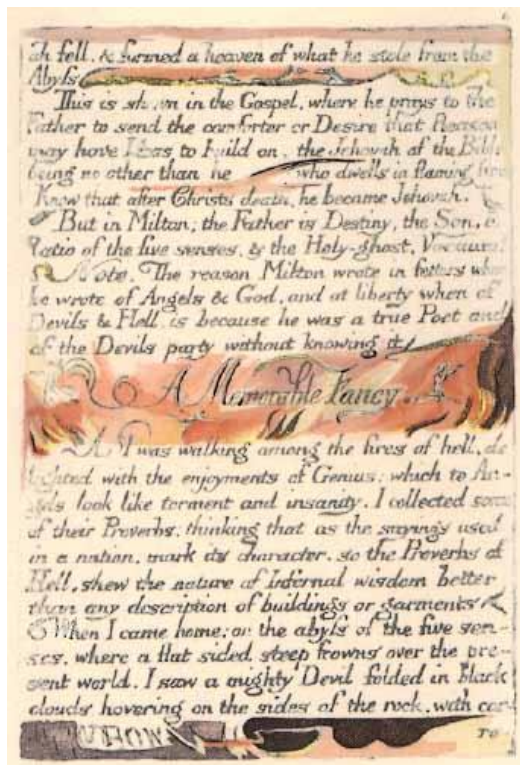 ah fell, & formed a heaven of what he stole from the
Abyss
This is shewn in the Gospel, where he prays to the
Father to send the comforter or Desire that Reason
may have Ideas to build on, the Jehovah of the Bible
being no other than he who dwells in flaming fire
Know that after Christs death, he became Jehovah.
But in Milton; the Father is Destiny, the Son, a
Ratio of the five senses, & the Holy-ghost, Vacuum!
Note. The reason Milton wrote in fetters when
he wrote of Angels & God, and at liberty when of
Devils & Hell, is because he was a true Poet and
of the Devils party without knowing it
A Memorable Fancy.
As I was walking among the fires of hell, de-
lighted with the enjoyments of Genius; which to An-
gels look like torment and insanity. I collected some
of their Proverbs: thinking that as the sayings used
in a nation, mark its character, so the Proverbs of
Hell, shew the nature of Infernal wisdom better
than any description of buildings or garments
When I came home; on the abyss of the five sen-
ses, where a flat sided steep frowns over the pre-
sent world. I saw a mighty Devil folded in black
clouds hovering on the sides of the rock, with cor-
ro-